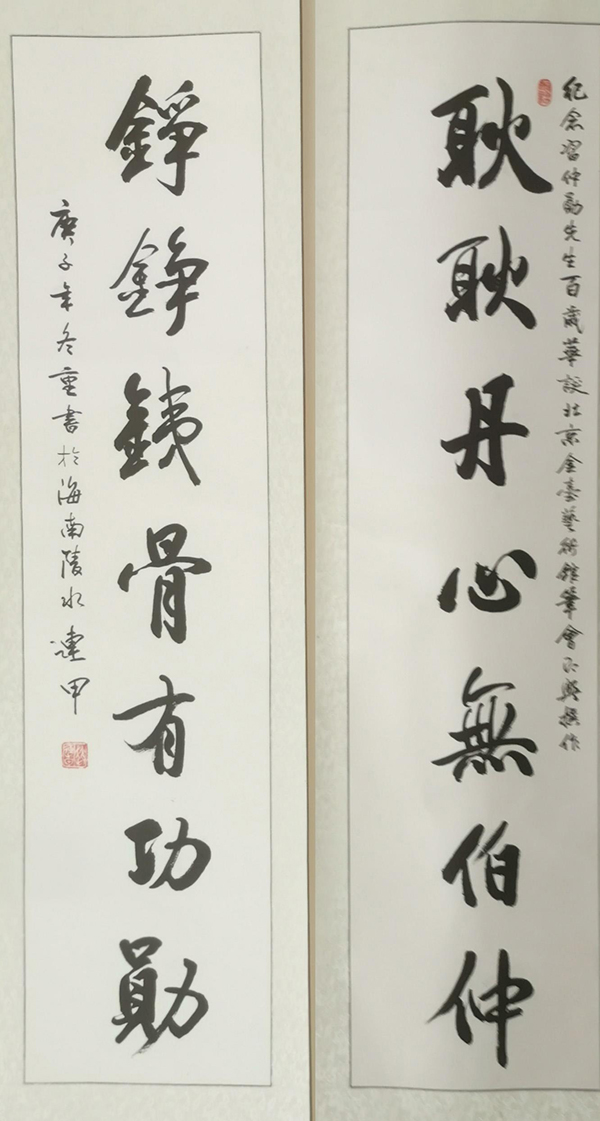 纪念習仲勋先生百歲華誕北京金臺藝術館筆會即興撰作
耿耿丹心無伯仲
錚錚鐵骨有功勛
庚子年冬重書於海南陵水 連甲